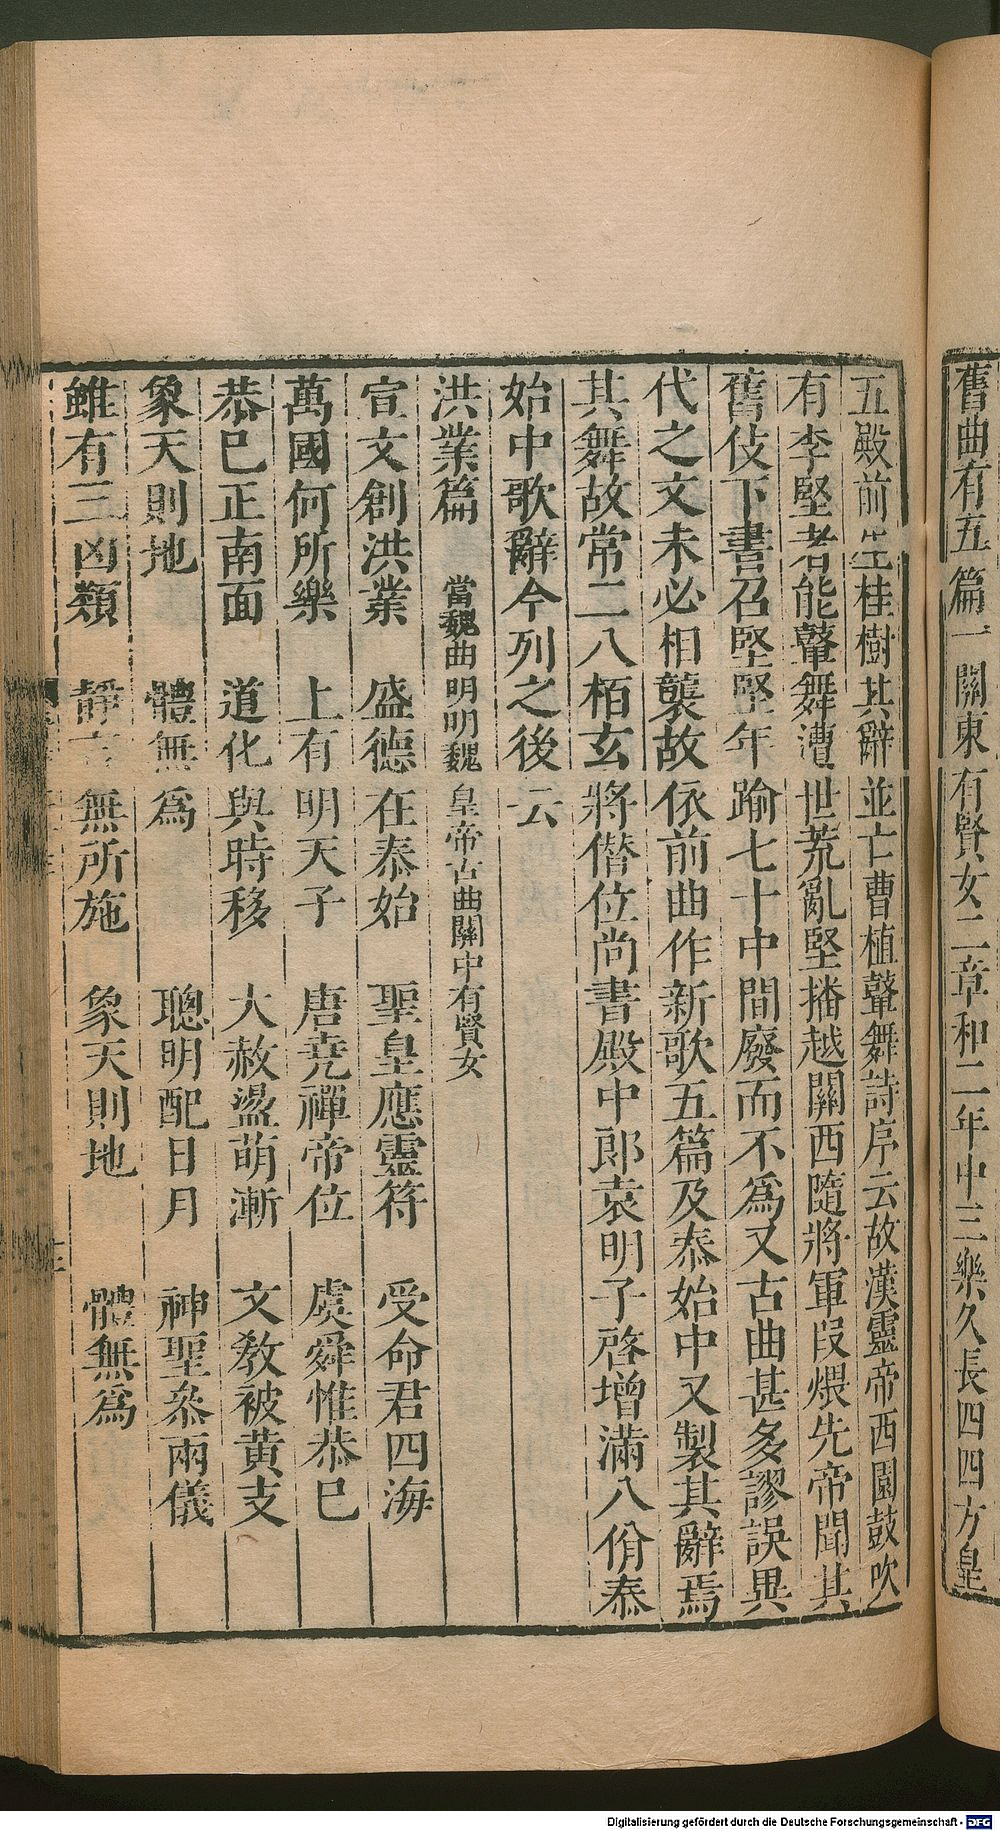 舊曲有五篇一關東有賢女二章和二年中三樂久長四四方皇
五殿前生桂樹其辭並亡曹植鼙舞詩序云故漢靈帝西園鼓吹
有李堅者能鼙舞遭世荒亂堅播越關西隨將軍段煨先帝聞其
舊伎下書召堅堅年踰七十中間廢而不為又古曲甚多謬誤異
代之文未必相襲故依前曲作新歌五篇及泰始中又製其辭焉
其舞故常二八栢玄將僣位尚書殿中郎袁明子啓增滿八佾泰
始中歌辭今列之後云
洪業篇 當魏曲明明魏皇帝古曲關中有賢女
宣文創洪業 盛德在泰始 聖皇應靈符 受命君四海
萬國何所樂 上有明天子 唐堯禪帝位 虞舜惟恭巳
恭巳正南面 道化與時移 大赦盪萌漸 文教被黄支
象天則地 體無為 聰明配日月 神聖叅兩儀
雖有三凶類 靜言無所施 象天則地 體無為
Digitalisierung gefördert durch die Deutsche Forschungsgemeinschaft - DFG